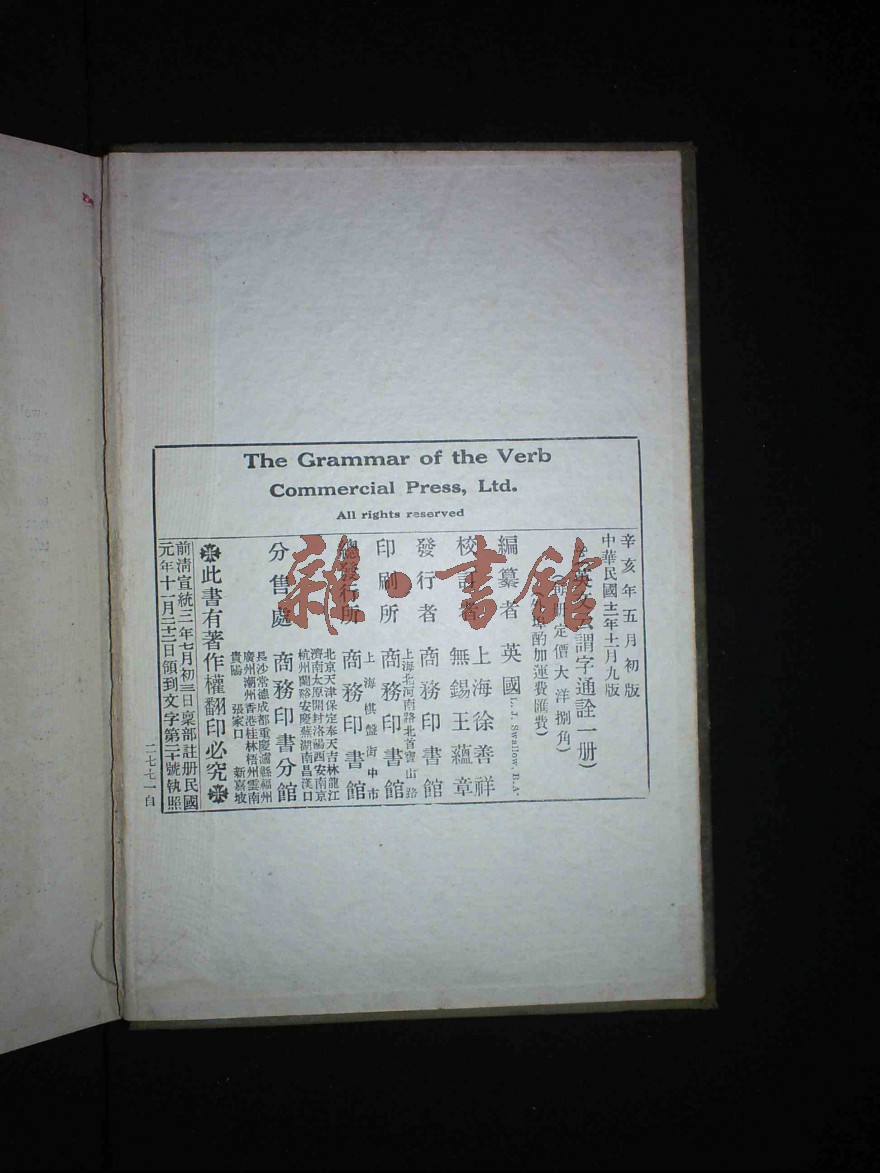 The Grammar of the Verb
Commercial Press, Ltd.
All rights reserved
辛亥年五月初版
中華民國十二年十一月九版
英文云謂字通詮一册)
定價大洋捌角)
酌加運費匯費)
編纂者 英國 L. J. Swallow, B.A.
校訂者 上海徐善祥
無錫王蘊章
發行者 商務印書館
上海北河南路北首寶山路
印刷所 商務印書館
上海棋盤街中市
總發行所 商務印書館
北京天津保定奉天吉林龍江
濟南太原開封洛陽西安南京
杭州蘭谿安慶蕪湖南昌漢口
分售處 商務印書分館
長沙常德成都重慶瀘縣福州
廣州潮州香港桂林梧州雲南
貴陽 張家口 新嘉坡
此書有著作權翻印必究
前清宣統三年七月初三日稟部註册民國
元年十一月二十二日領到文字第二十號執照
二七七一自
雜·書館